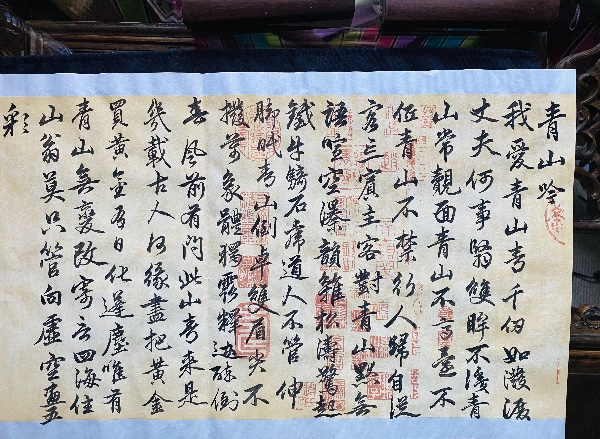 青山吟
我愛青山青千仞如潑
丈夫何事翳雙眸不青
山常覿面青山不不
低青山不禁行人歸自從
客忘賓主客對青山默無
語喧空瀑韻雜松濤驚起
鐵牛驕石虎道人不管伸
腳眠青山倒卓雙眉尖不
撥萬象體獨露輝醉倒
春風前有問此山青來是
幾載古人何緣盡把黃金
買黃金有日化塵唯有
青山無變改寄言四海住
山翁莫只管向虛空畫五
彩